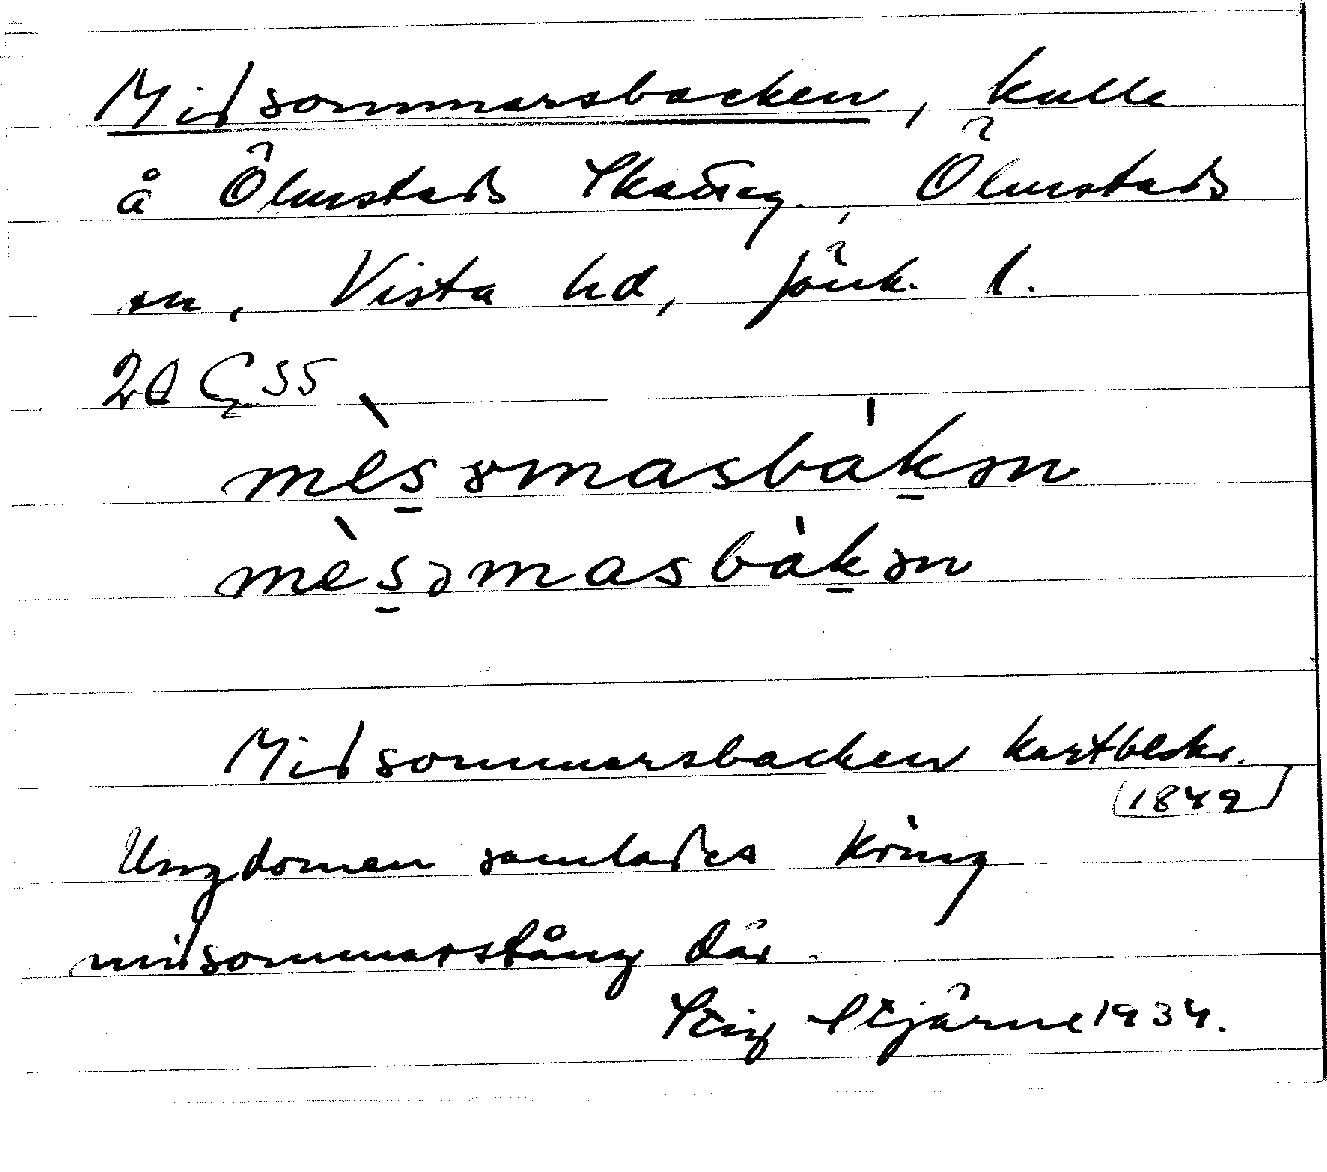 Midsommarsbacken, kulle
å Ölmstads Skatteg., Ölmstads
sn, Vista hd, Jönk. l.
2d G 35
mèsomasbàkən
mèsəmasbàkən
Midsommarsbacken kartbeskr.
1849
Ungdomen samlades kring
midsommarstång där.
Stig Stjärne 1934.